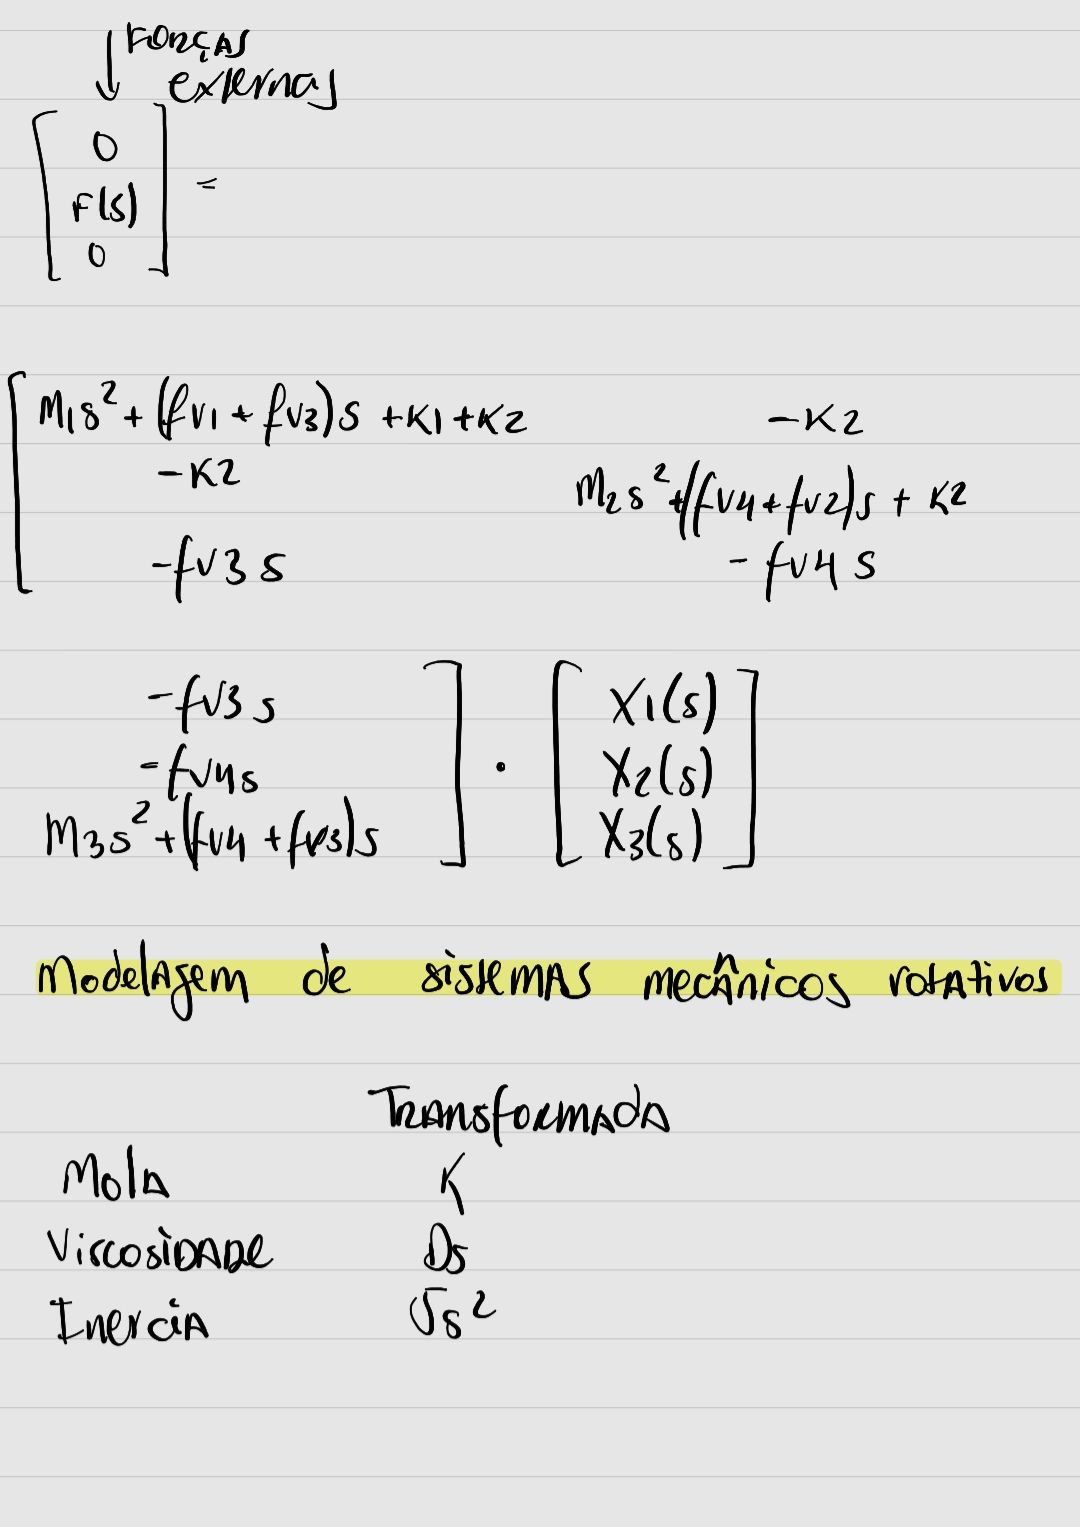 ↓ FORÇAS
externas
[ 0
F(s) ] =
0
[ M1s² + (fv1 + fv3)s + K1 + K2    -K2
-K2    M2s² + (fv4 + fv2)s + K2
-fv3 s    - fv4 s
-fv3 s ] · [ X1(s) ]
-fv4s    X2(s)
M3s² + (fv4 + fv3)s    X3(s)
Modelagem de sistemas mecânicos rotativos
Transformada
Mola    K
Viscosidade    Ds
Inercia    Js²